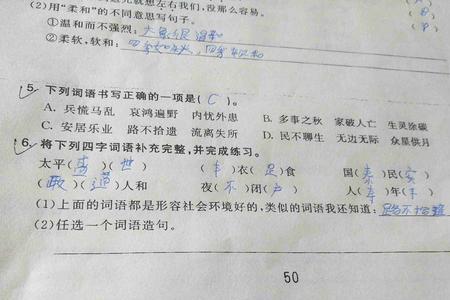 就想左右我们,没那么容易。
(2)用“柔和”的不同意思写句子。
①温和而不强烈:大象很温和
②柔软,软和:
5. 下列词语书写正确的一项是( C )。
A. 兵慌马乱 哀鸿遍野 内忧外患 B. 多事之秋 家破人亡 生灵涂碳
C. 安居乐业 路不拾遗 流离失所 D. 民不聊生 无边无际 众星供月
6. 将下列四字词语补充完整,并完成练习。
太平( 盛 )( 世 ) ( 丰 )衣( 足 )食 国( 泰 )民( 安 )
( 政 )( 通 )人和 夜( 不 )闭( 户 ) 人( 寿 )年( 丰 )
(1)上面的词语都是形容社会环境好的,类似的词语我还知道:路不拾遗
(2)任选一个词语造句。
50